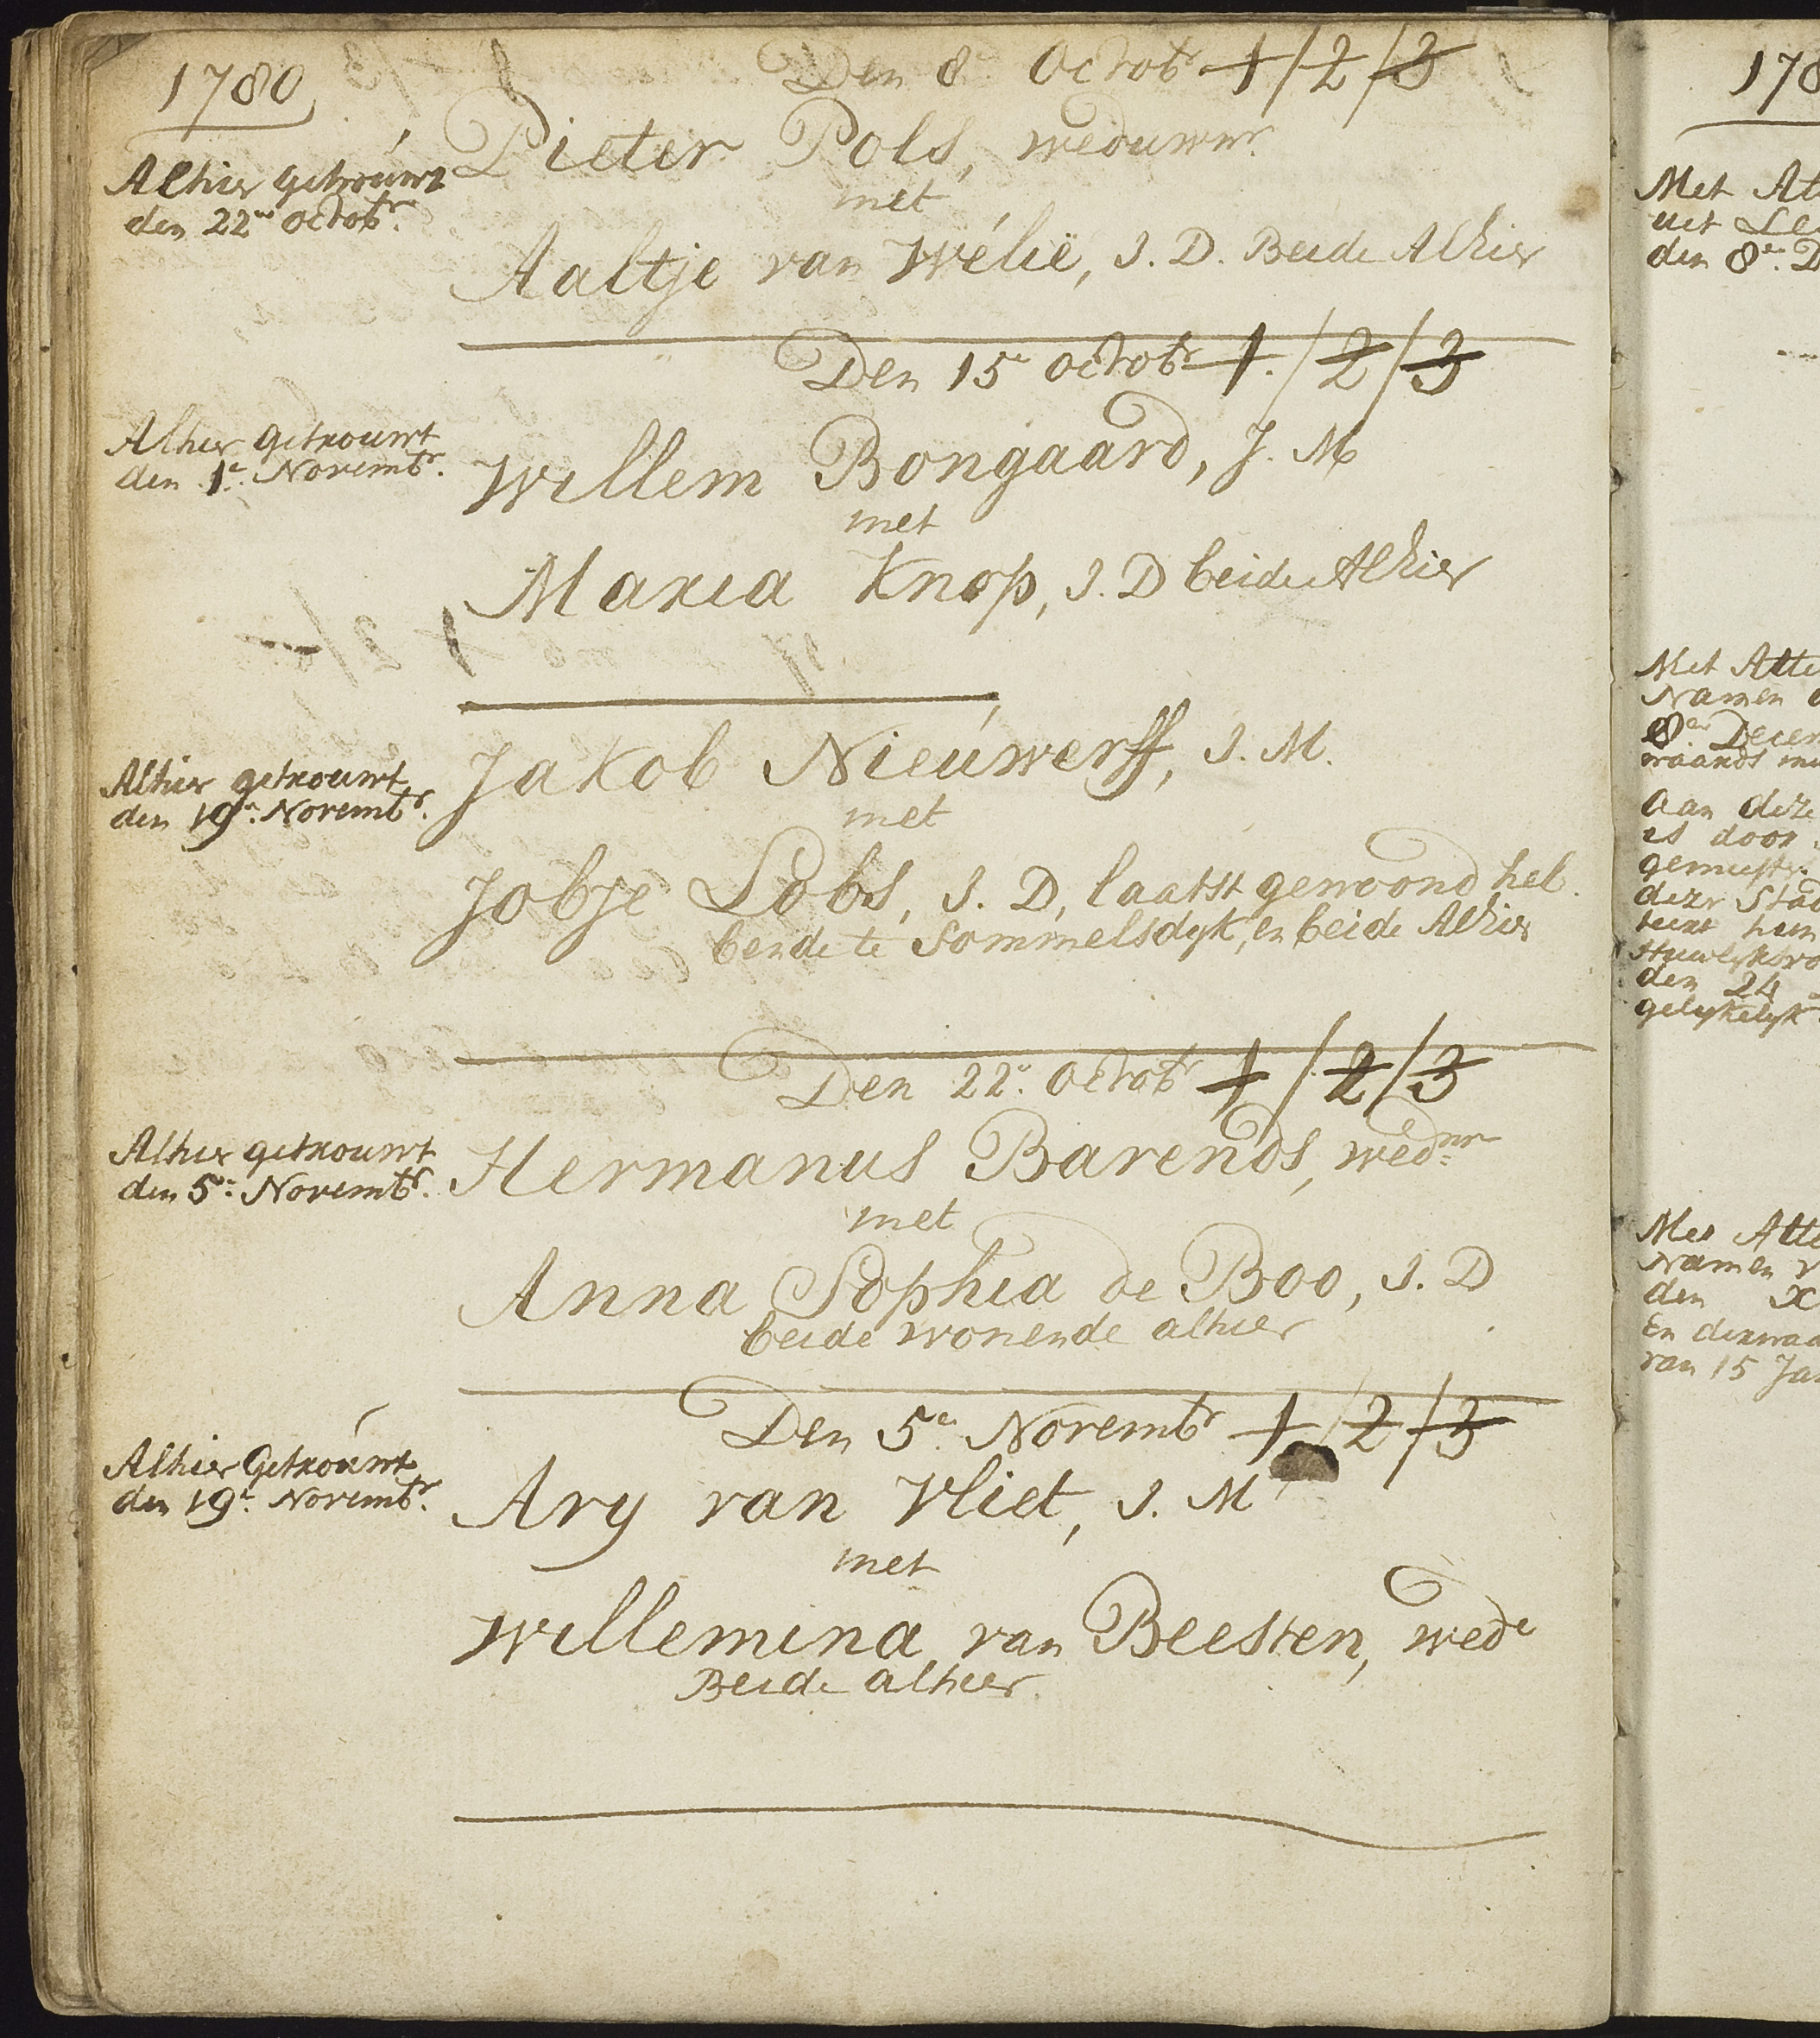 1780
Den 8e Octobr 1/2/3
Alhier getrouwt
den 22en Octobr.
Pieter Pols, weduwnr.
met
Aaltje van Wélië, J. D. Beide Alhier
Den 15e Octobr 1/2/3
Alhier getrouwt
den 1e. Novembr.
Willem Bongaard, J. M
met
Maria Knop, J. D beide Alhier
Alhier getrouwt
den 19e. Novembr.
Jakob Nieúwerff, J. M.
met
Jobje Lobs, J. D, laatst gewoond heb
bende te Sommelsdyk, en beide Alhier
Den 22e. Octobr 1/2/3
Alhier getrouwt
den 5e. Novembr.
Hermanus Barends, wednr
met
Anna Sophia de Boo, J. D
beide wonende alhier
Den 5e. Novembr 1/2/3
Alhier Getroúwt
den 19e. Novembr.
Ary van Vliet, J. M
met
Willemina van Beesten, wede
Beide alhier.
178
Met At
uit Le
den 8e. D
Met Atte
Namen
8en Decem
waands
Aan deze
is door
gemeeste
dezer Stad
hun
Huwlyksvo
den 24
gelykelyk
Met Atte
Namen v
den X
En derwaa
van 15 Jan